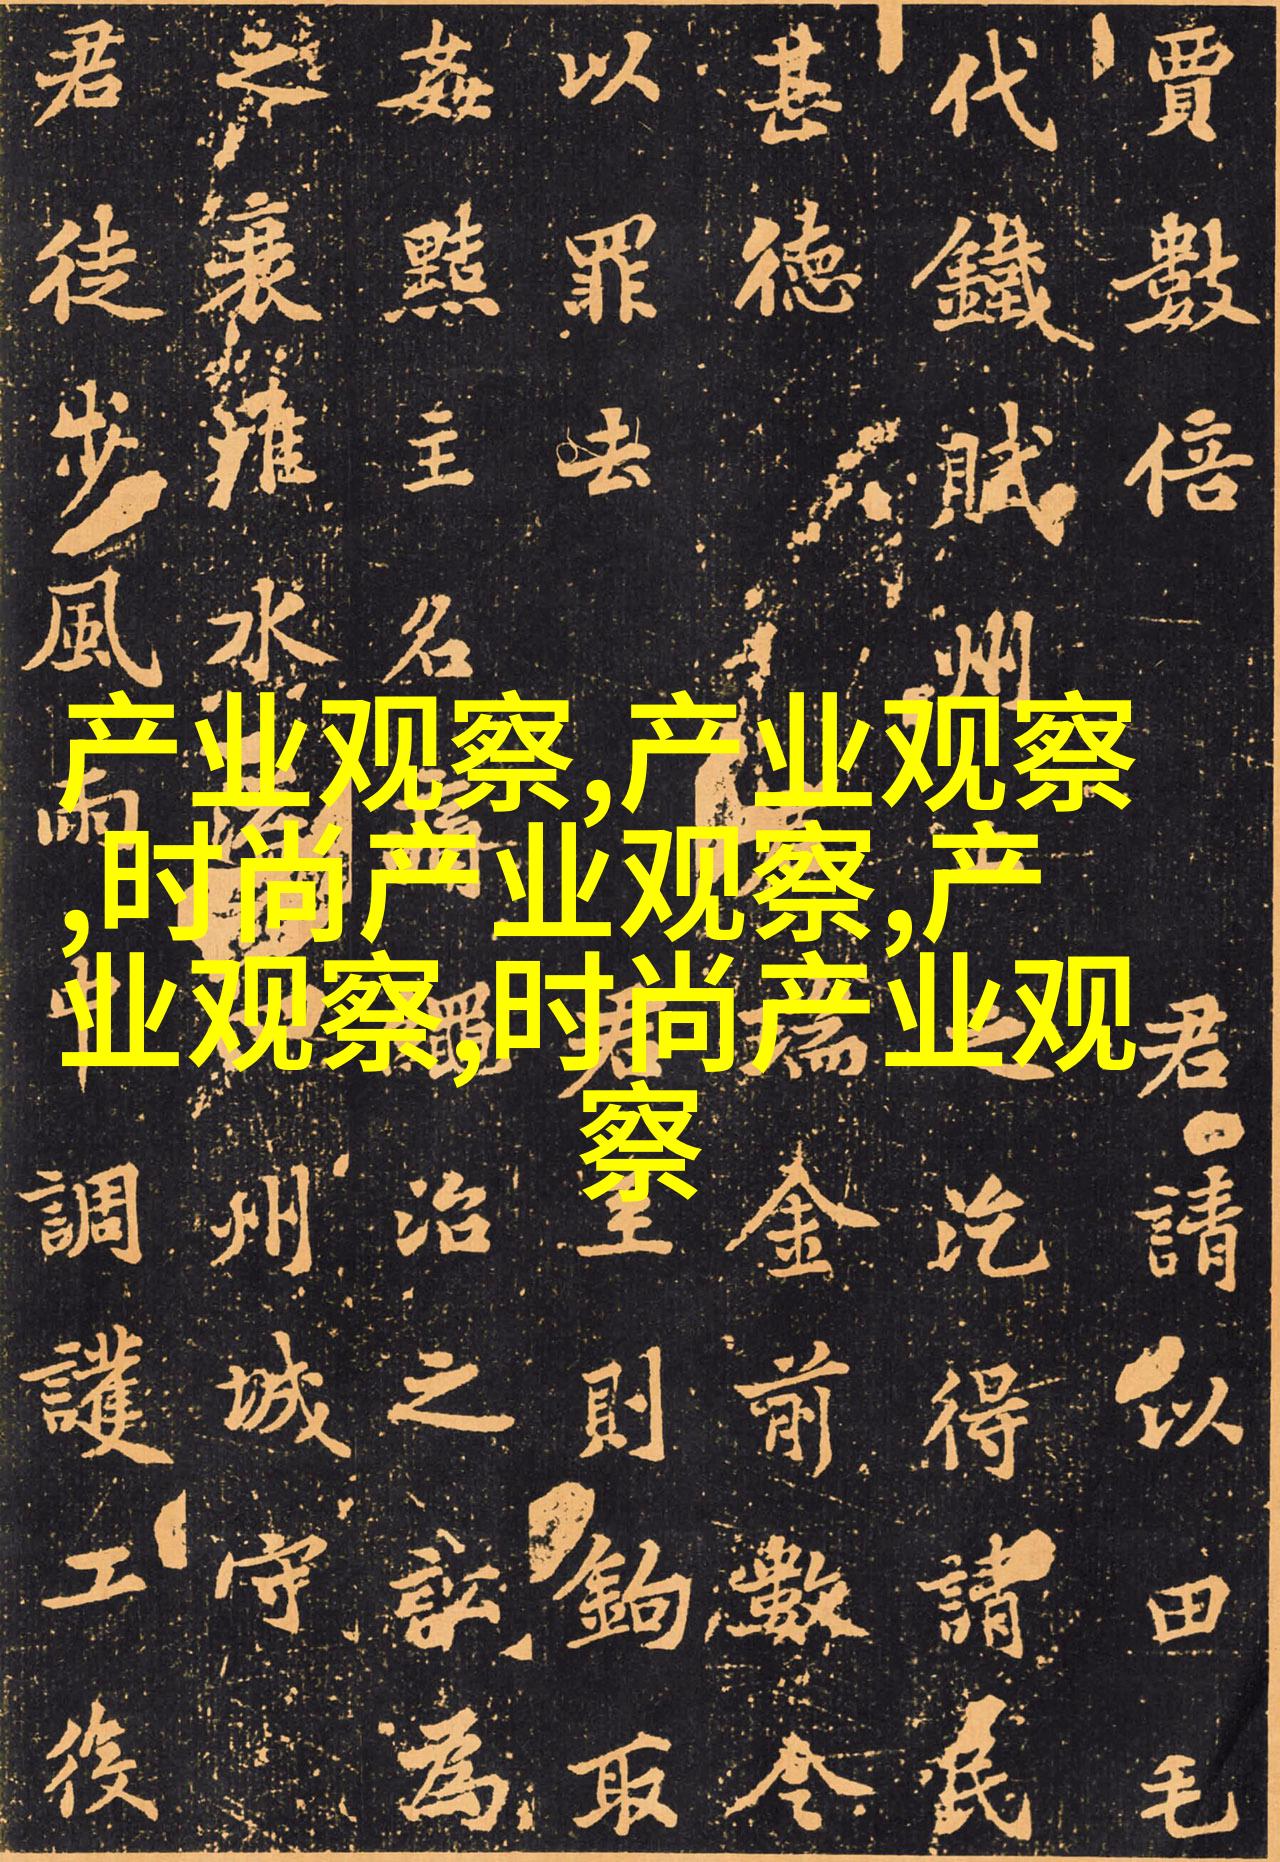 产业观察,产业观察
,时尚产业观察,产
业观察,时尚产业观
察
賈數倍君請以田毛
代鐵賦州之汔得請民
甚德瑞金前數令
以罪去君至則鉤取
姦黠主名治之訟為
之衰水州城守
君徒步風雨中調護工役